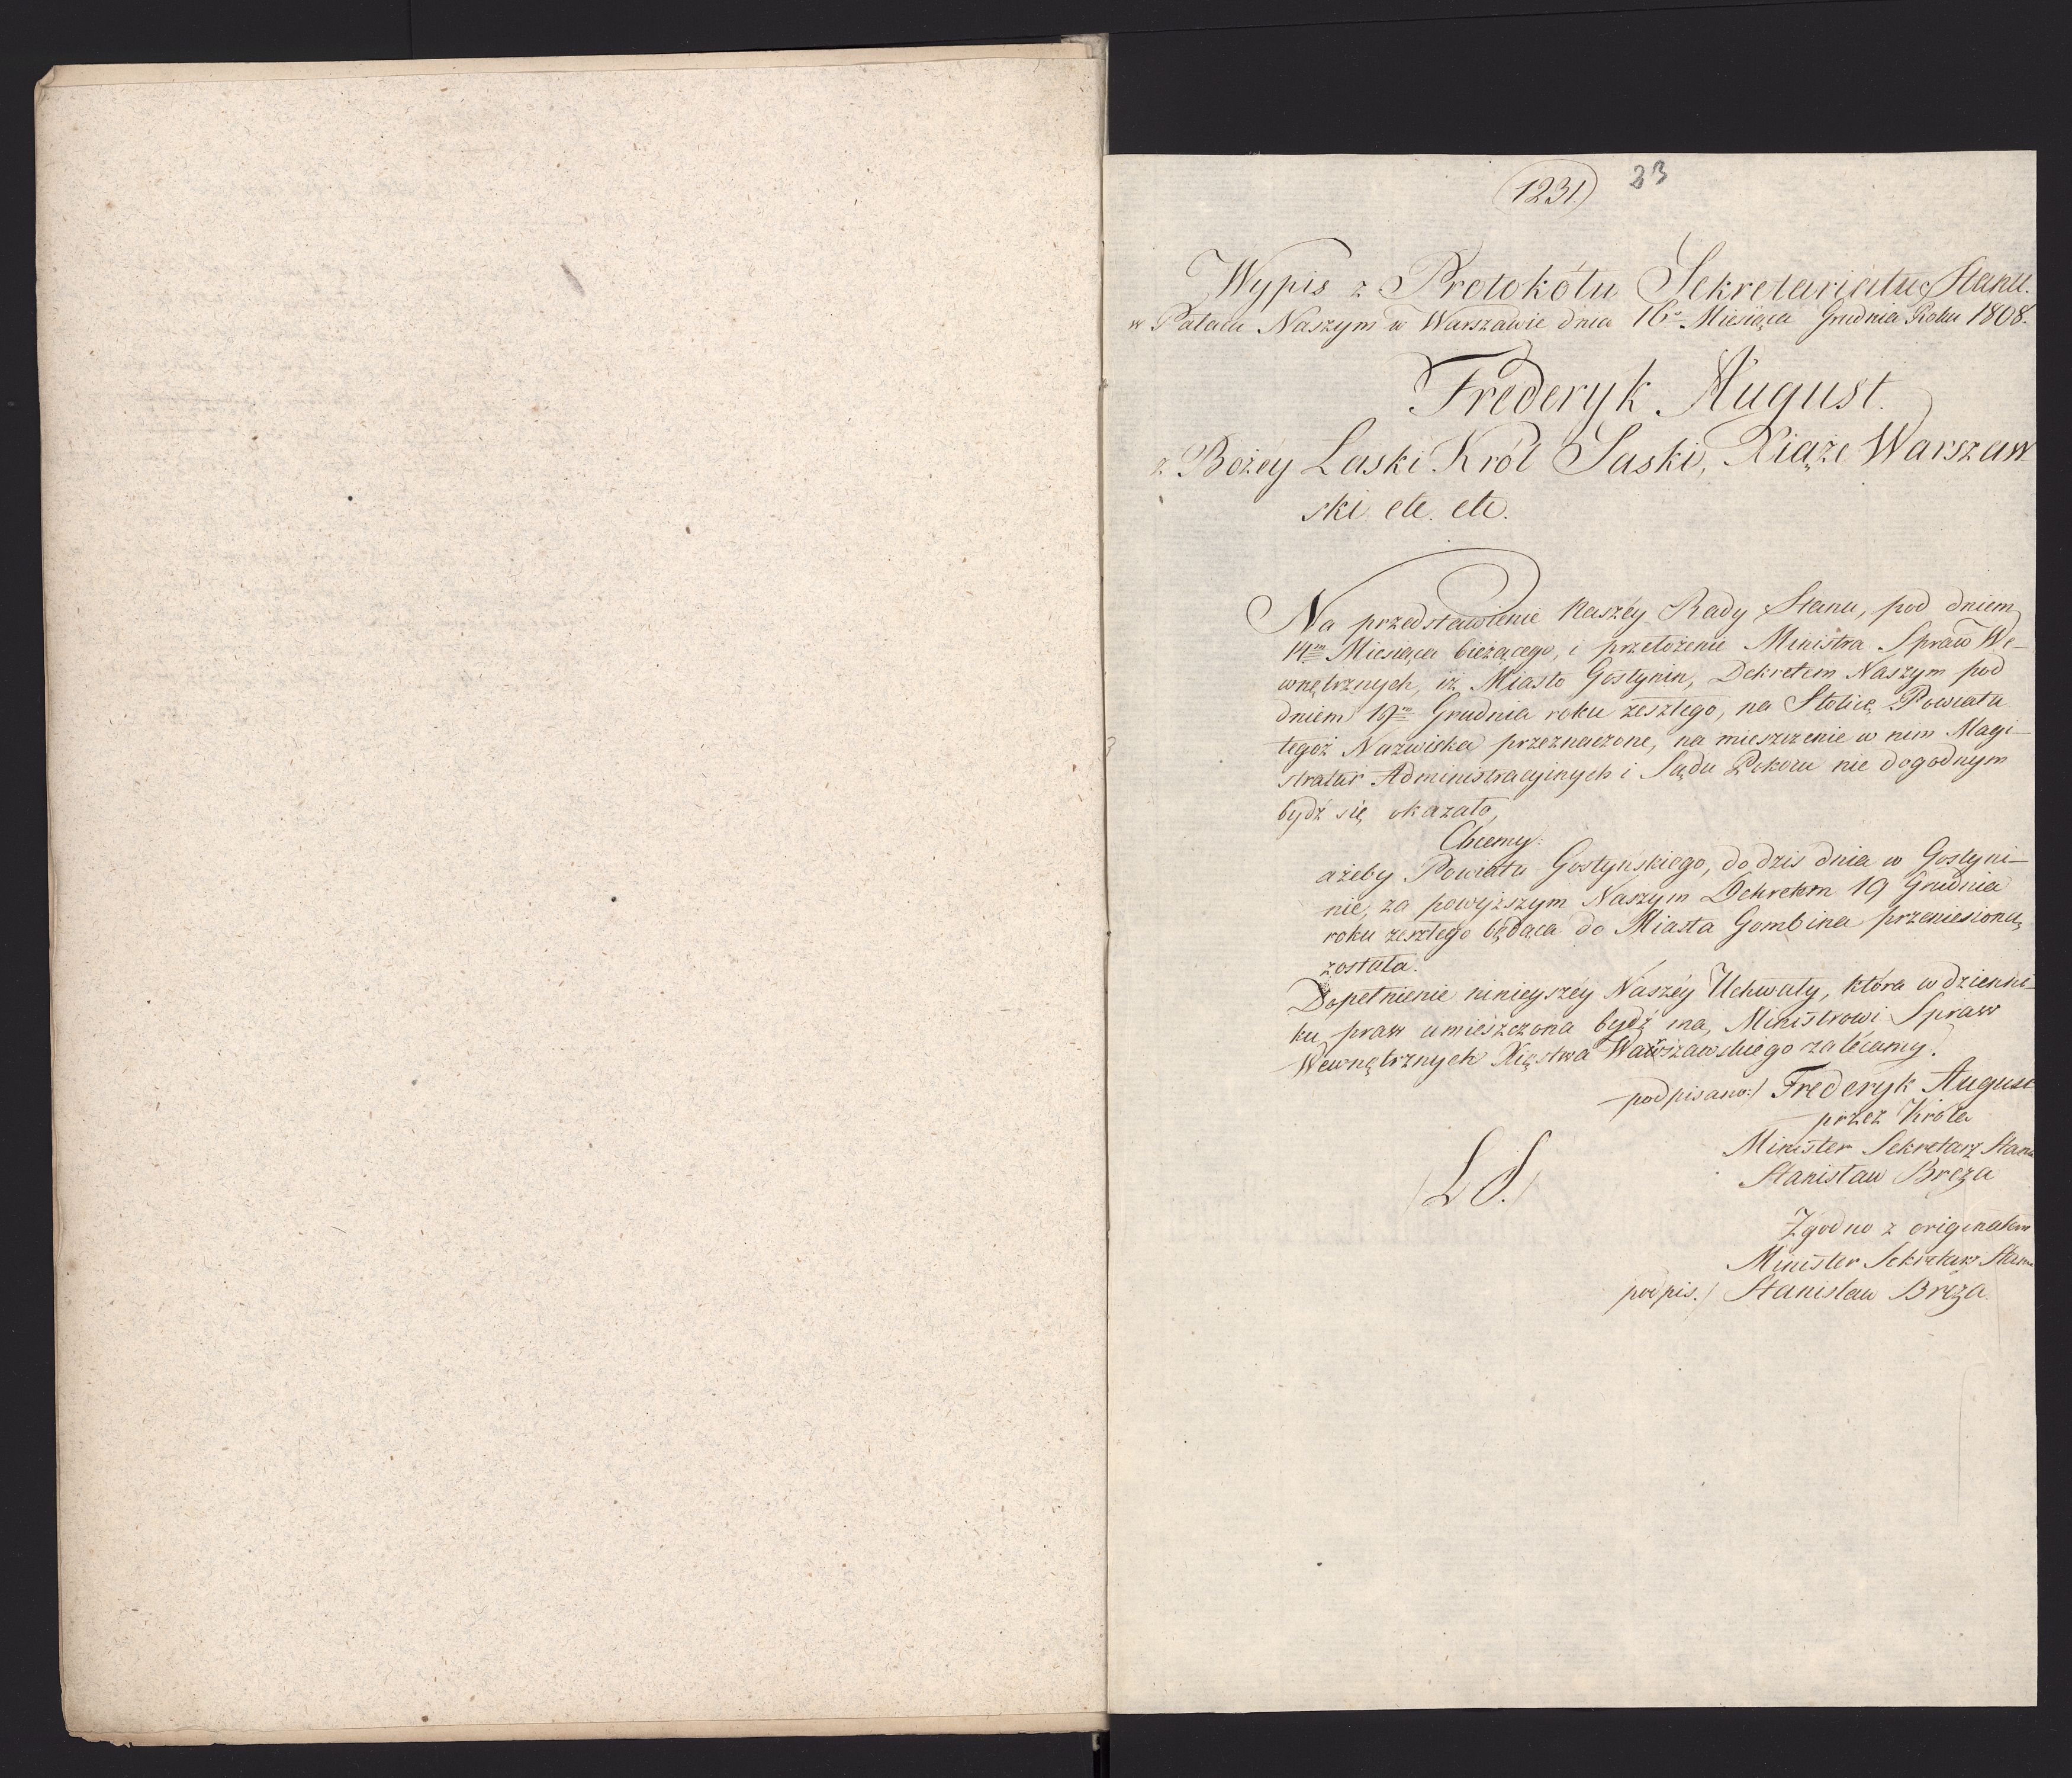 1231 23
Wypis z Protokółu Sekretariatu Stanu.
w Pałacu Naszym w Warszawie dnia 16º Miesiąca Grudnia Roku 1808.
Frederyk August.
z Bożéy Łaski Król Saski, Xiąże Warszaw
ski etc. etc.
Na przedstawienie Naszéy Rady Stanu, pod dniem
14m Miesiąca bieżącego, i przełożenie Ministra Spraw We-
wnętrznych, iż Miasto Gostynin, Dekretem Naszym pod
dniem 19m Grudnia roku zeszłego, na Stolicę Powiatu
tegoż Nazwiska przeznaczone, na mieszczenie w nim Magi-
stratur Administracyinych i Sądu Pokoiu nie dogodnym
bydź się okazało,
Chcemy:
ażeby Powiatu Gostyńskiego, do dziś dnia w Gostyni-
nie, za powyższym Naszym Dekretem 19 Grudnia
roku zeszłego będąca do Miasta Gombina przeniesioną
została.
Dopełnienie ninieyszéy Naszéy Uchwały, która w dzienni-
ku praw umieszczona bydź ma, Ministrowi Spraw
Wewnętrznych Xięstwa Warszawskiego zalécamy.
podpisano:/ Frederyk August
przez Króla
Minister Sekretarz Stanu
/L S./ Stanisław Breza
Zgodno z originałem
Minister Sekretarz Stanu
podpis./ Stanisław Bréza